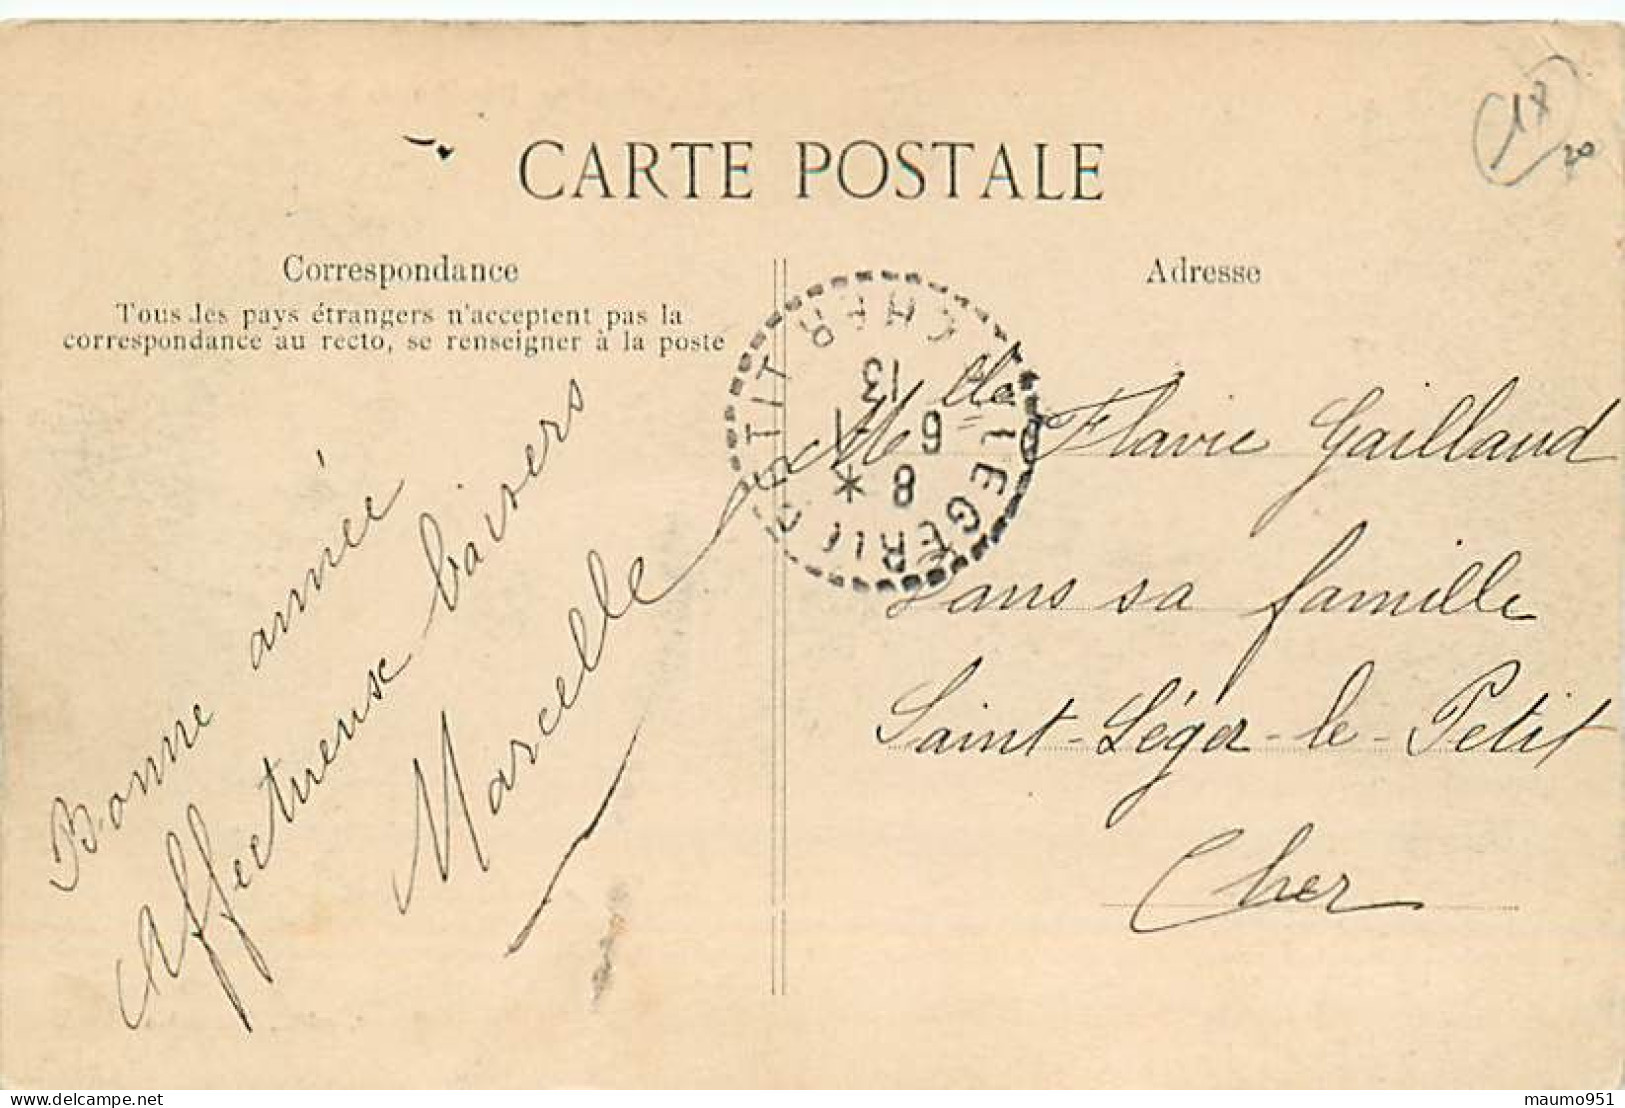 CARTE POSTALE
Correspondance
Tous les pays étrangers n'acceptent pas la
correspondance au recto, se renseigner à la poste
Bonne année
Affectueux baisers
Marcelle
Adresse
Mlle Flavie Gaillaud
Dans sa famille
Saint-Léger-le-Petit
Cher
CHER
13
6 1
8 *
maumo951